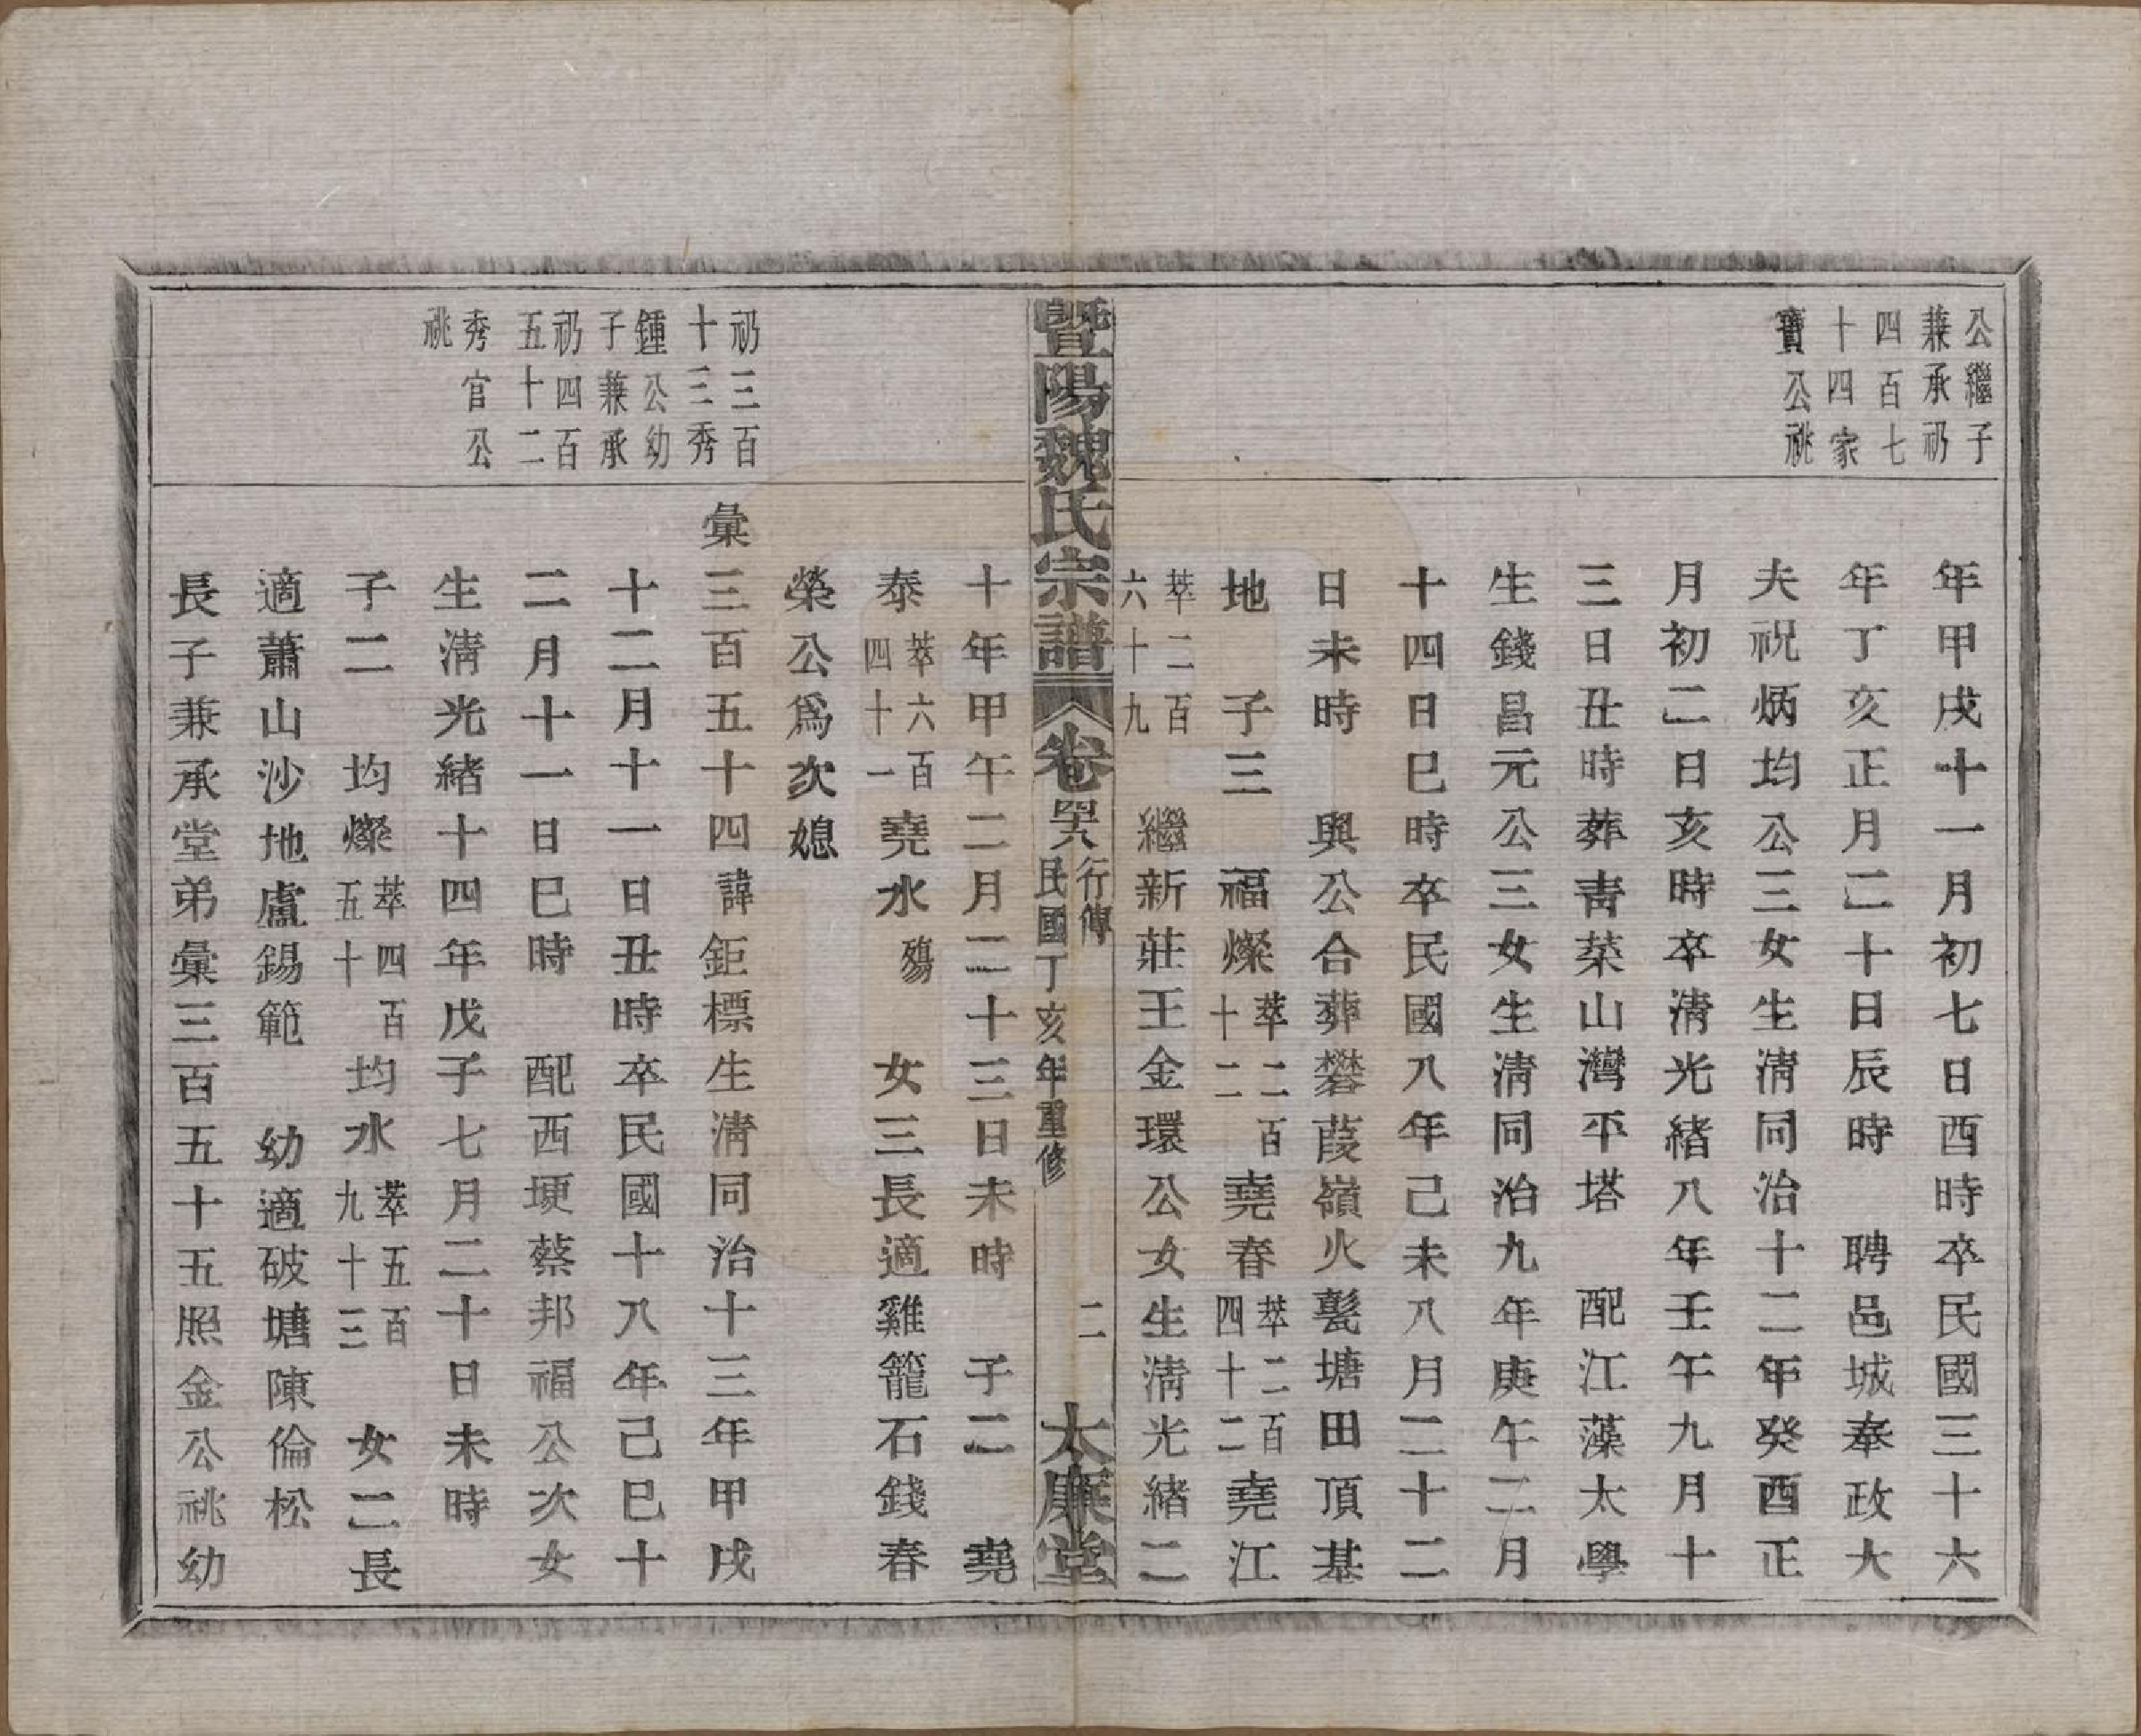 公繼子
兼承礽
四百七
十四家
寶公祧
年甲戌十一月初七日酉時卒民國三十六
年丁亥正月二十日辰時　聘邑城奉政大
夫祝炳均公三女生淸同治十二年癸酉正
月初二日亥時卒淸光緒八年壬午九月十
三日丑時葬靑菜山灣平塔　配江藻太學
生錢昌元公三女生淸同治九年庚午二月
十四日巳時卒民國八年己未八月二十二
日未時　與公合葬礬葭嶺火甏塘田頂基
地　子三　福燦萃二百十二　堯春萃二百四十二　堯江
萃二百六十九　繼新莊王金環公女生淸光緒二
暨陽魏氏宗譜　卷四六　行傳　民國丁亥年重修　二　大廉堂
十年甲午二月二十三日未時　子二　堯
泰萃六百四十一　堯水殤　女三長適雞籠石錢春
榮公爲次媳
礽三百
十三秀
鍾公幼
子兼承
礽四百
五十二
秀官公
祧
彙三百五十四諱鉅標生淸同治十三年甲戌
十二月十一日丑時卒民國十八年己巳十
二月十一日巳時　配西埂蔡邦福公次女
生淸光緒十四年戊子七月二十日未時
子二　均燦萃四百五十　均水萃五百九十三　女二長
適蕭山沙地盧錫範　幼適破塘陳倫松
長子兼承堂弟彙三百五十五照金公祧幼